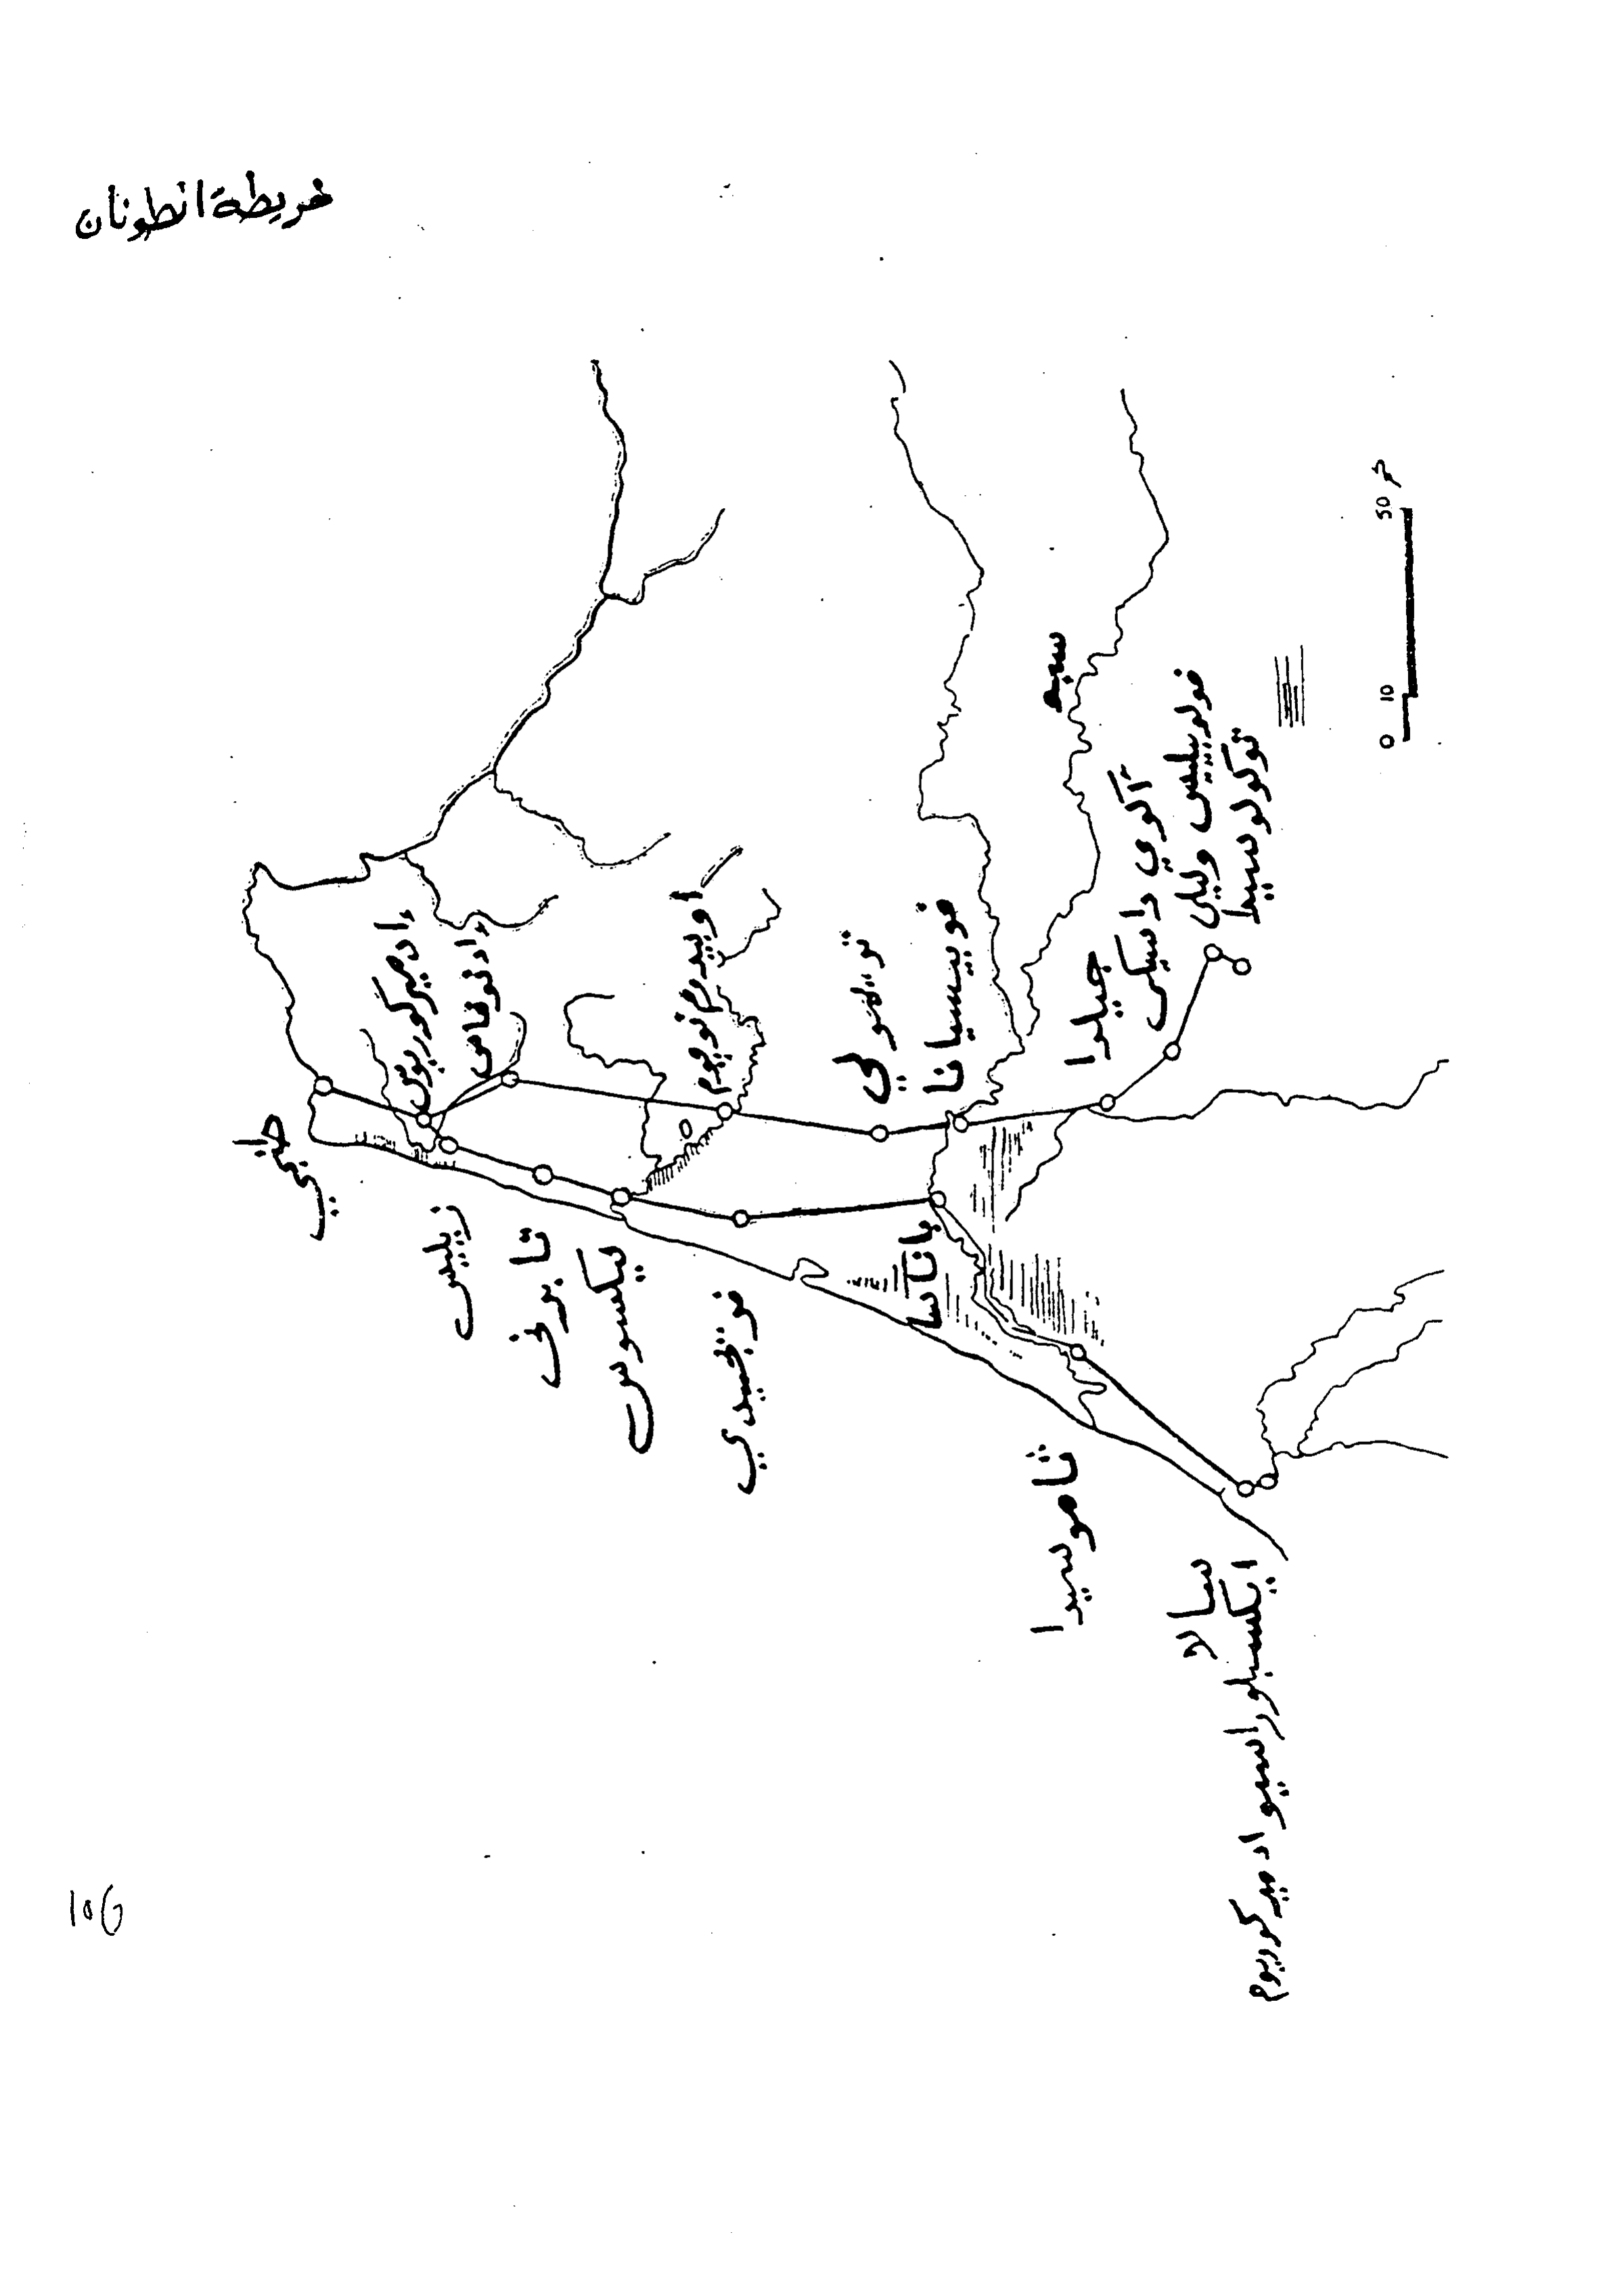 خريطة انطونان
طنجي
زيليس
تابرني
ليكسوس
فريجيدي
باناسا
ثاموسيدا
سالا
ايكسبلوراسيو ادميركوريوم
إدميركوريوس
إدنوفاس
اوبيدوم نوفوم
فوبيسيانا
جيلدا
أكوي داسيكي
فولوبيليس وليلي
توكولوسيدا
0 10 50
106